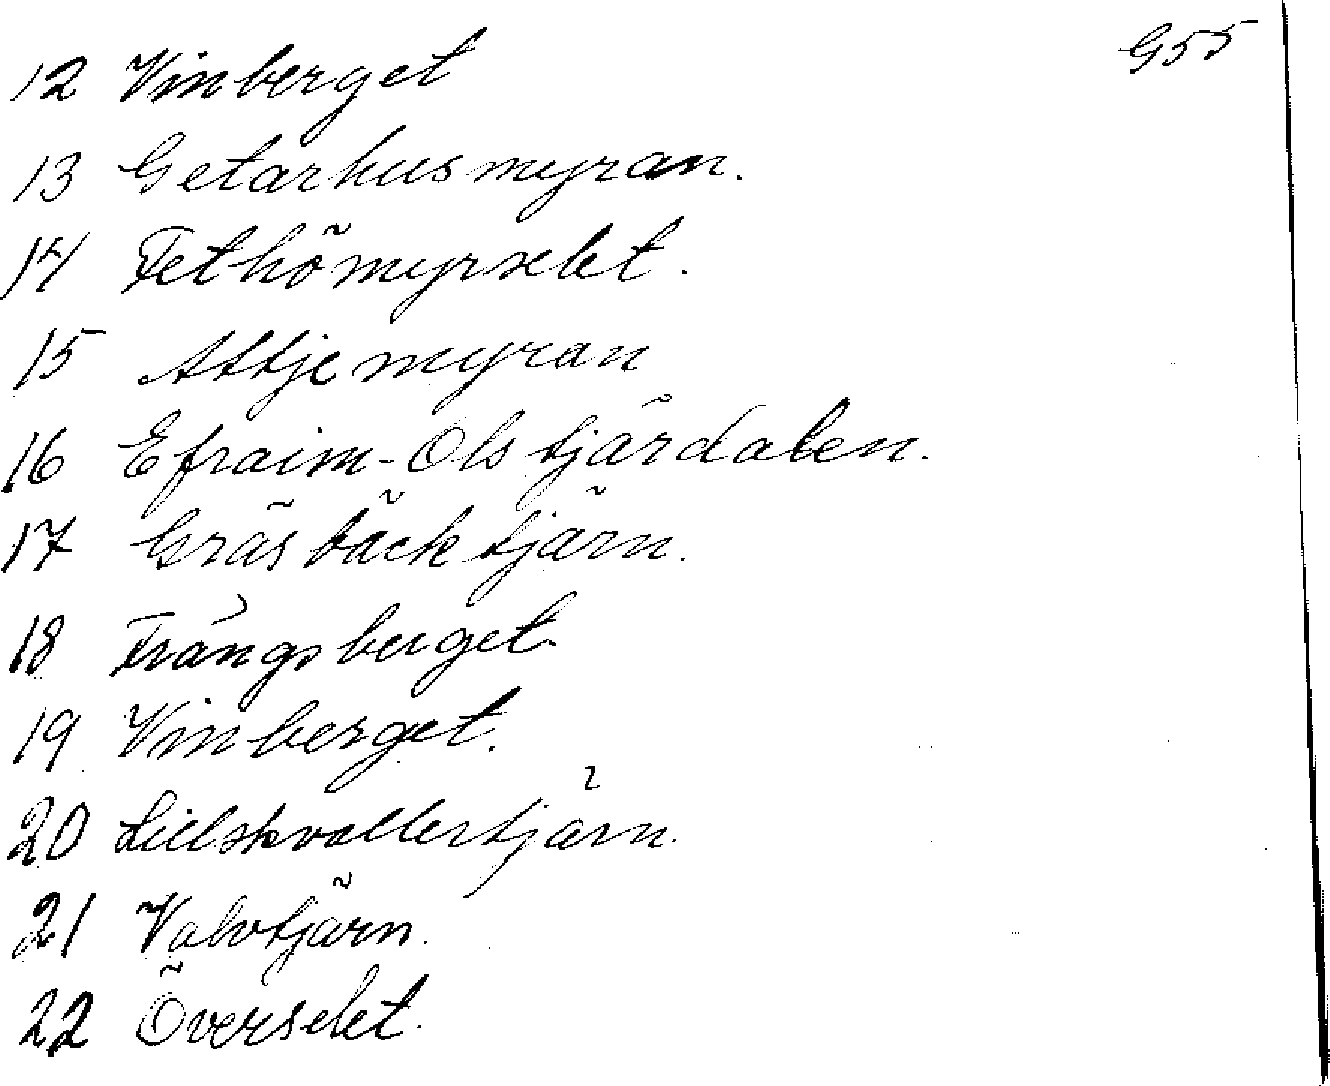 12 Vinberget G55
13 Getarhusmyran.
14 Fethömyrselet.
15 Attjemyran
16 Efraim-Ols tjärdalen.
17 Gräsbäcktjärn.
18 Trångsberget.
19 Vinberget.
20 Lillskvallertjärn.
21 Valvtjärn.
22 Överselet.